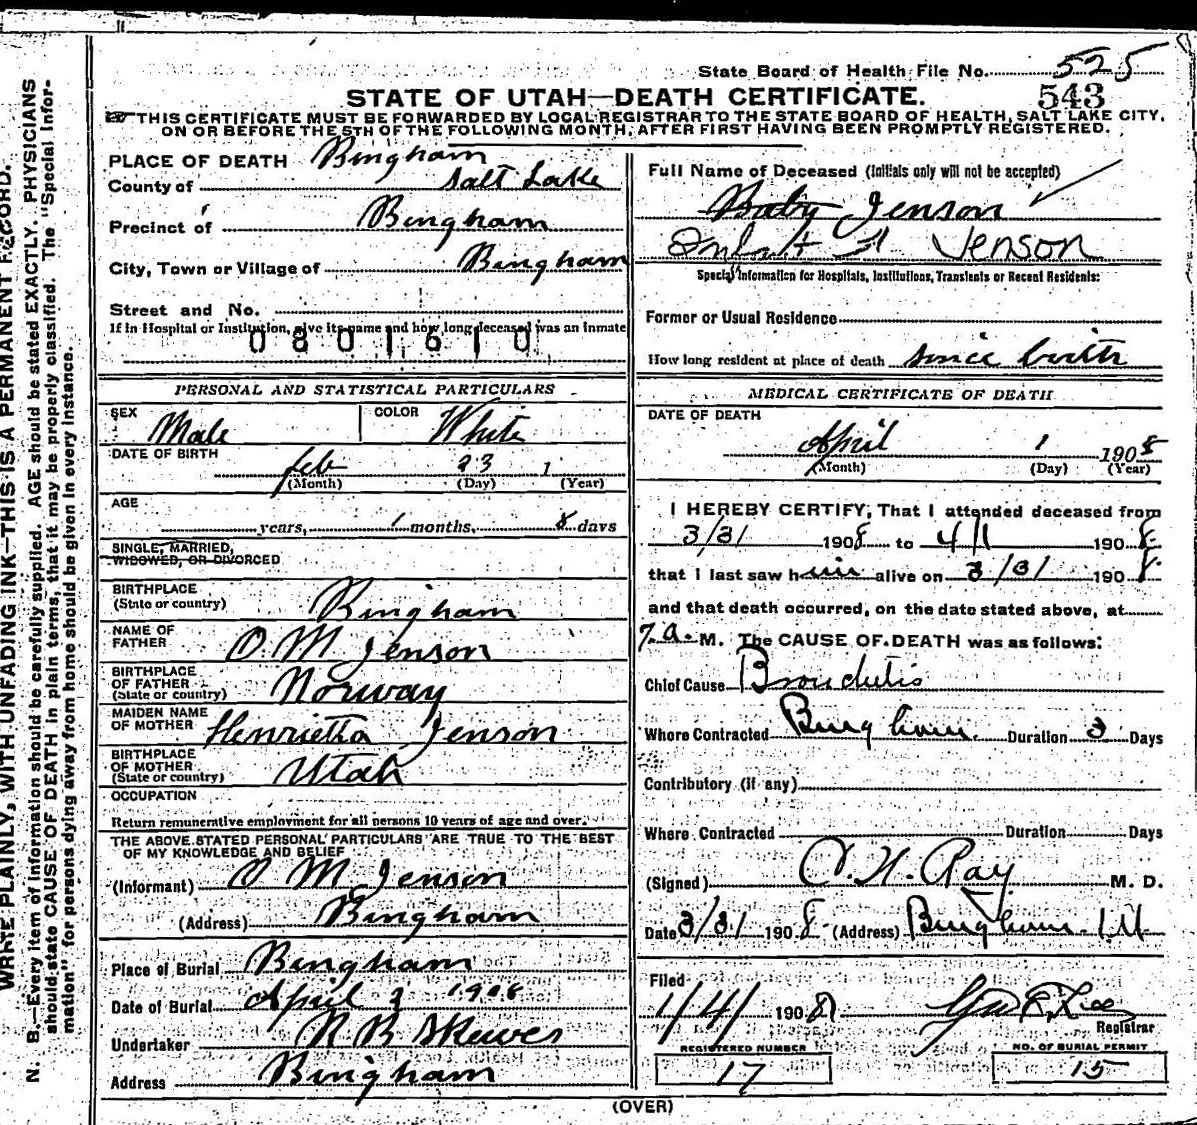 State Board of Health File No. 525
543
STATE OF UTAH—DEATH CERTIFICATE.
THIS CERTIFICATE MUST BE FORWARDED BY LOCAL REGISTRAR TO THE STATE BOARD OF HEALTH, SALT LAKE CITY,
ON OR BEFORE THE 5TH OF THE FOLLOWING MONTH, AFTER FIRST HAVING BEEN PROMPTLY REGISTERED.
WRITE PLAINLY, WITH UNFADING INK—THIS IS A PERMANENT RECORD.
N. B.—Every item of information should be carefully supplied. AGE should be stated EXACTLY. PHYSICIANS
should state CAUSE OF DEATH in plain terms, that it may be properly classified. The "Special Infor-
mation" for persons dying away from home should be given in every instance.
PLACE OF DEATH Bingham
County of Salt Lake
Precinct of Bingham
City, Town or Village of Bingham
Street and No.
If in Hospital or Institution, give its name and how long deceased was an inmate
0801610
PERSONAL AND STATISTICAL PARTICULARS
SEX Male COLOR White
DATE OF BIRTH Feb 23 1
(Month) (Day) (Year)
AGE
years, 1 months, 8 days
SINGLE, MARRIED,
WIDOWED, OR DIVORCED
BIRTHPLACE
(State or country) Bingham
NAME OF
FATHER O. M Jenson
BIRTHPLACE
OF FATHER
(State or country) Norway
MAIDEN NAME
OF MOTHER Henrietta Jenson
BIRTHPLACE
OF MOTHER
(State or country) Utah
OCCUPATION
Return remunerative employment for all persons 10 years of age and over.
THE ABOVE STATED PERSONAL PARTICULARS ARE TRUE TO THE BEST
OF MY KNOWLEDGE AND BELIEF
(Informant) O M Jenson
(Address) Bingham
Place of Burial Bingham
Date of Burial April 3 1908
Undertaker R B Skewes
Address Bingham
Full Name of Deceased (Initials only will not be accepted)
Baby Jenson
Infant Jenson
Special Information for Hospitals, Institutions, Transients or Recent Residents:
Former or Usual Residence
How long resident at place of death since birth
MEDICAL CERTIFICATE OF DEATH
DATE OF DEATH
April 1 1908
(Month) (Day) (Year)
I HEREBY CERTIFY, That I attended deceased from
3/31 1908 to 4/1 1908
that I last saw him alive on 3/31 1908
and that death occurred, on the date stated above, at
7 a. M. The CAUSE OF DEATH was as follows:
Chief Cause Bronchitis
Where Contracted Bingham. Duration 3 Days
Contributory (if any)
Where Contracted Duration Days
(Signed) Ray M. D.
Date 3/31 1908 (Address) Bingham. Ut
Filed
1/4/ 1908
Registrar
REGISTERED NUMBER
17
NO. OF BURIAL PERMIT
15
(OVER)